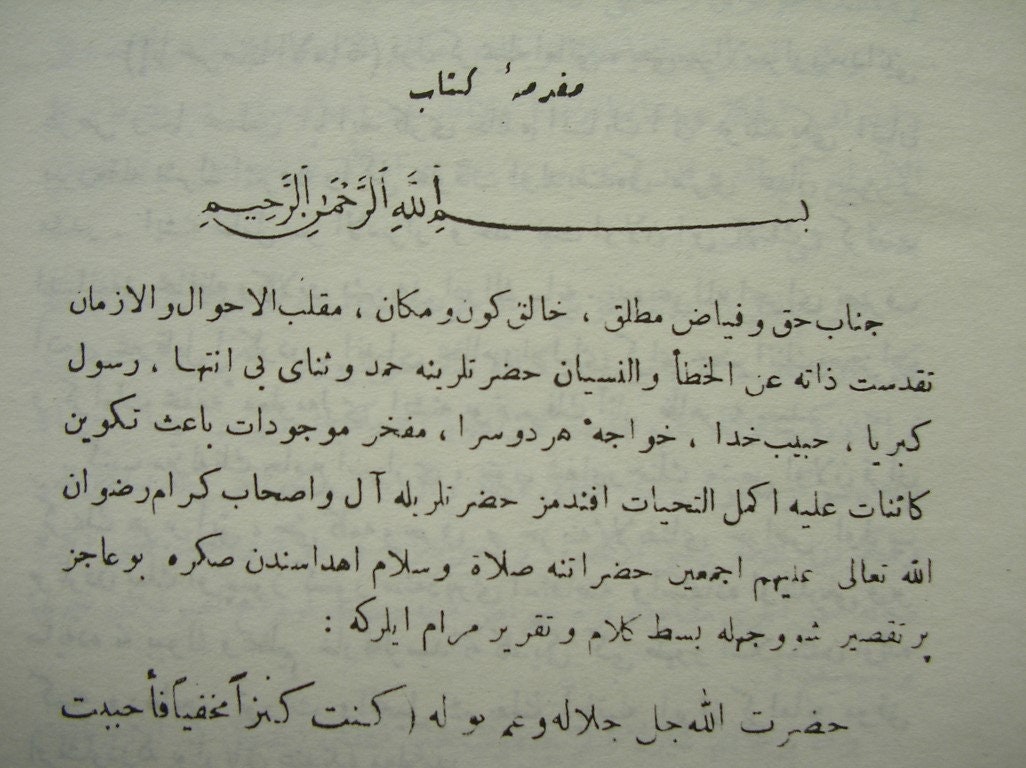 مقدمهٔ كتاب
بسم الله الرحمن الرحيم
جناب حق و فياض مطلق ، خالق كون و مكان ، مقلب الاحوال و الازمان
تقدست ذاته عن الخطأ والنسيان حضرتلرينه حمد و ثناى بى انتها ، رسول
كبريا ، حبيب خدا ، خواجهٔ هر دو سرا ، مفخر موجودات باعث تكوين
كائنات عليه اكمل التحيات افندمز حضرتلريله آل و اصحاب كرام رضوان
الله تعالى عليهم اجمعين حضراتنه صلاة و سلام اهداسندن صكره بو عاجز
پر تقصير شو وجهله بسط كلام و تقرير مرام ايلركه :
حضرت الله جل جلاله و عم نواله ( كنت كنزاً مخفياً فأحببت